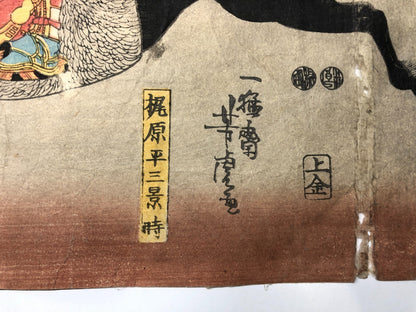 一猛齋
芳虎画
上金
梶原平三景時